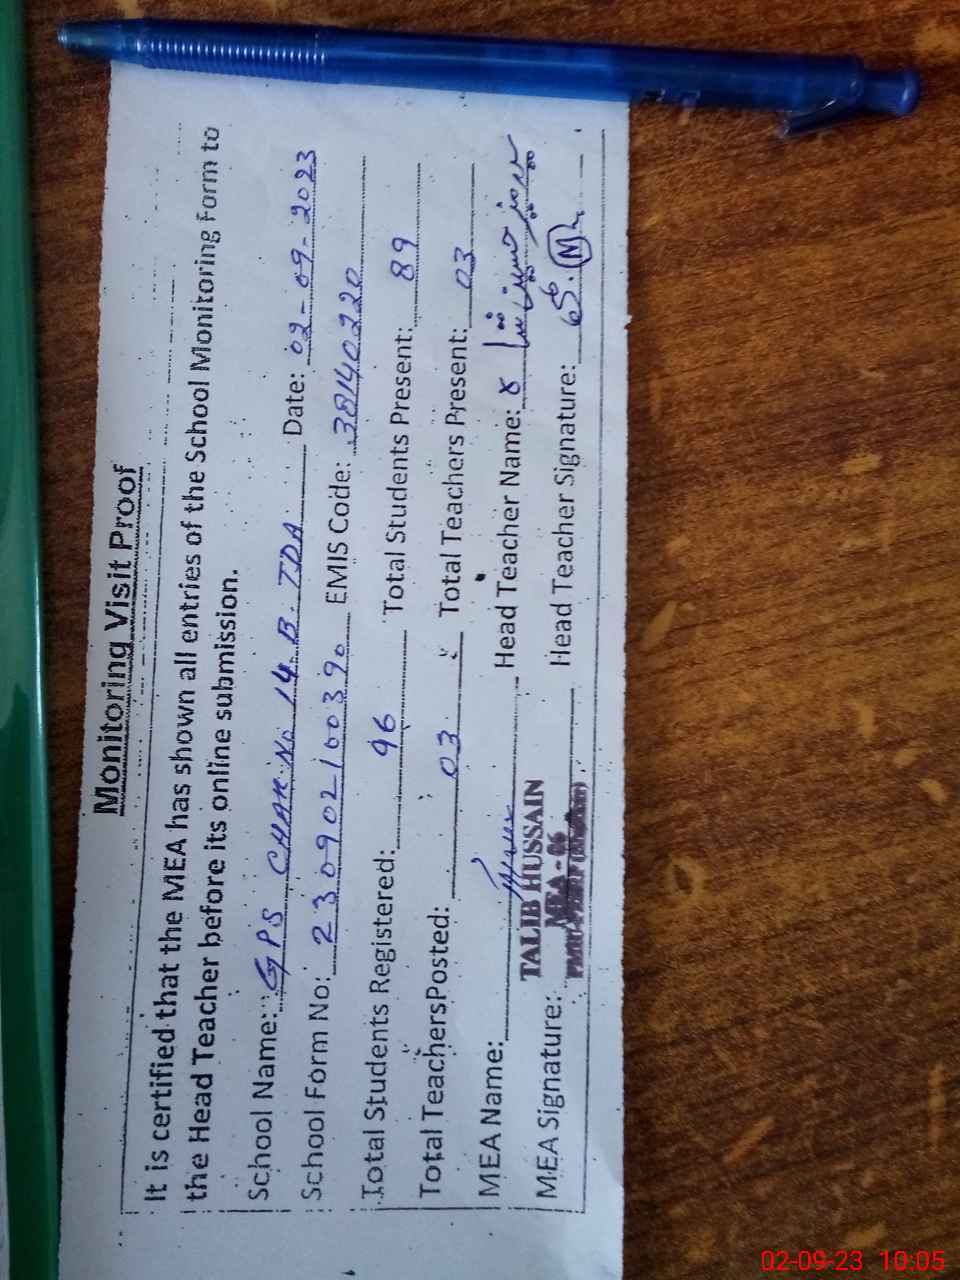 Monitoring Visit Proof
It is certified that the MEA has shown all entries of the School Monitoring Form to
the Head Teacher before its online submission.
School Name: GPS CHAK No 14 B. TDA Date: 02-09-2023
School Form No: 230902100390 EMIS Code: 38140220
Total Students Registered: 96 Total Students Present: 89
Total TeachersPosted: 03 Total Teachers Present: 03
MEA Name: Head Teacher Name:
TALIB HUSSAIN
MEA Signature: MEA - 06 Head Teacher Signature:
02-09-23 10:05